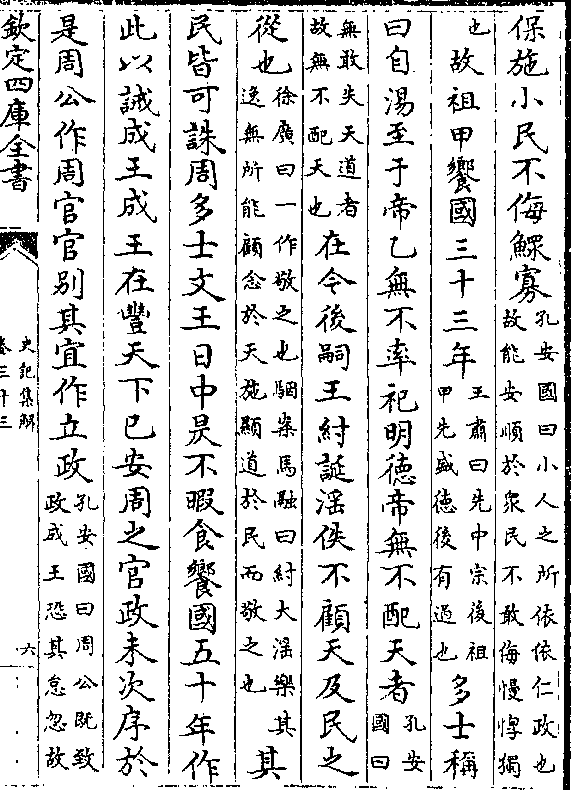 保施小民不侮鰥寡孔安國曰小人之所依依仁政也故能安順於衆民不敢侮慢惸獨
也故祖甲饗國三十三年王肅曰先中宗後祖甲先盛德後有過也多士稱
曰自湯至于帝乙無不率祀明德帝無不配天者孔安國曰
無敢失天道者故無不配天也在今後嗣王紂誕淫佚不顧天及民之
從也徐廣曰一作敬之也駰案馬融曰紂大淫樂其逸無所能顧念於天施顯道於民而敬之也其
民皆可誅周多士文王日中昃不暇食饗國五十年作
此以誡成王成王在豐天下已安周之官政未次序於
是周公作周官官别其宜作立政孔安國曰周公既致政成王恐其怠忽故
欽定四庫全書
史記集解
卷三十三
六